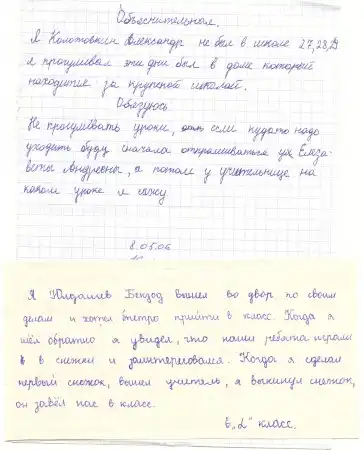 Объяснительная.
Я Колотовкин Александр не был в школе 27,28,29
я прогуливал эти дни был в доме который
находится за крупской школой.
Обезуюсь
Не прогуливать уроки, если кудато надо
уходить буду сначала отпрашиваться у Елеза-
веты Андревны, а потом у учительнице, на
каком уроке я сижу
8.05.06
Я Юлдашев Бекзод вышел во двор по своим
делам и хотел быстро прийти в класс. Когда я
шёл обратно я увидел, что наши ребята играли
в снежки и заинтересовался. Когда я сделал
первый снежок, вышел учитель, я выкинул снежок,
он завёл нас в класс.
8 "L" класс.